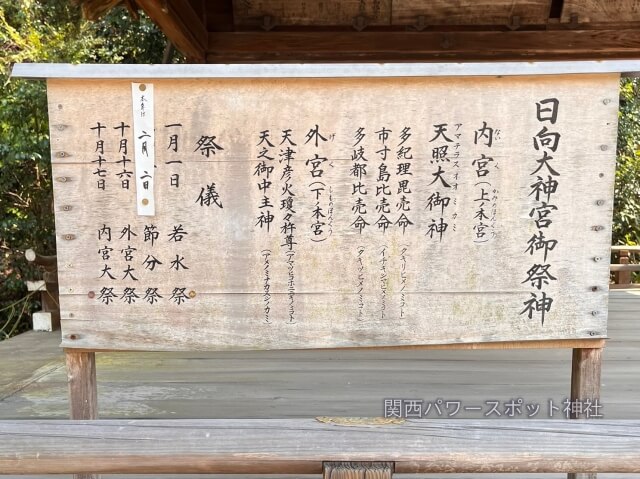 日向大神宮御祭神
内宮(上ノ本宮)
ないくう
かみのほんぐう
アマテラスオオミカミ
天照大御神
多紀理毘売命(タキリヒメノミコト)
市寸島比売命(イチキシマヒメノミコト)
多岐都比売命(タキツヒメノミコト)
外宮(下ノ本宮)
げくう
しものほんぐう
天津彦火瓊々杵尊(アマツヒコホニニギノミコト)
天之御中主神(アメノミナカヌシノカミ)
祭儀
一月一日 若水祭
本年は
二月二日 節分祭
十月十六日 外宮大祭
十月十七日 内宮大祭
関西パワースポット神社